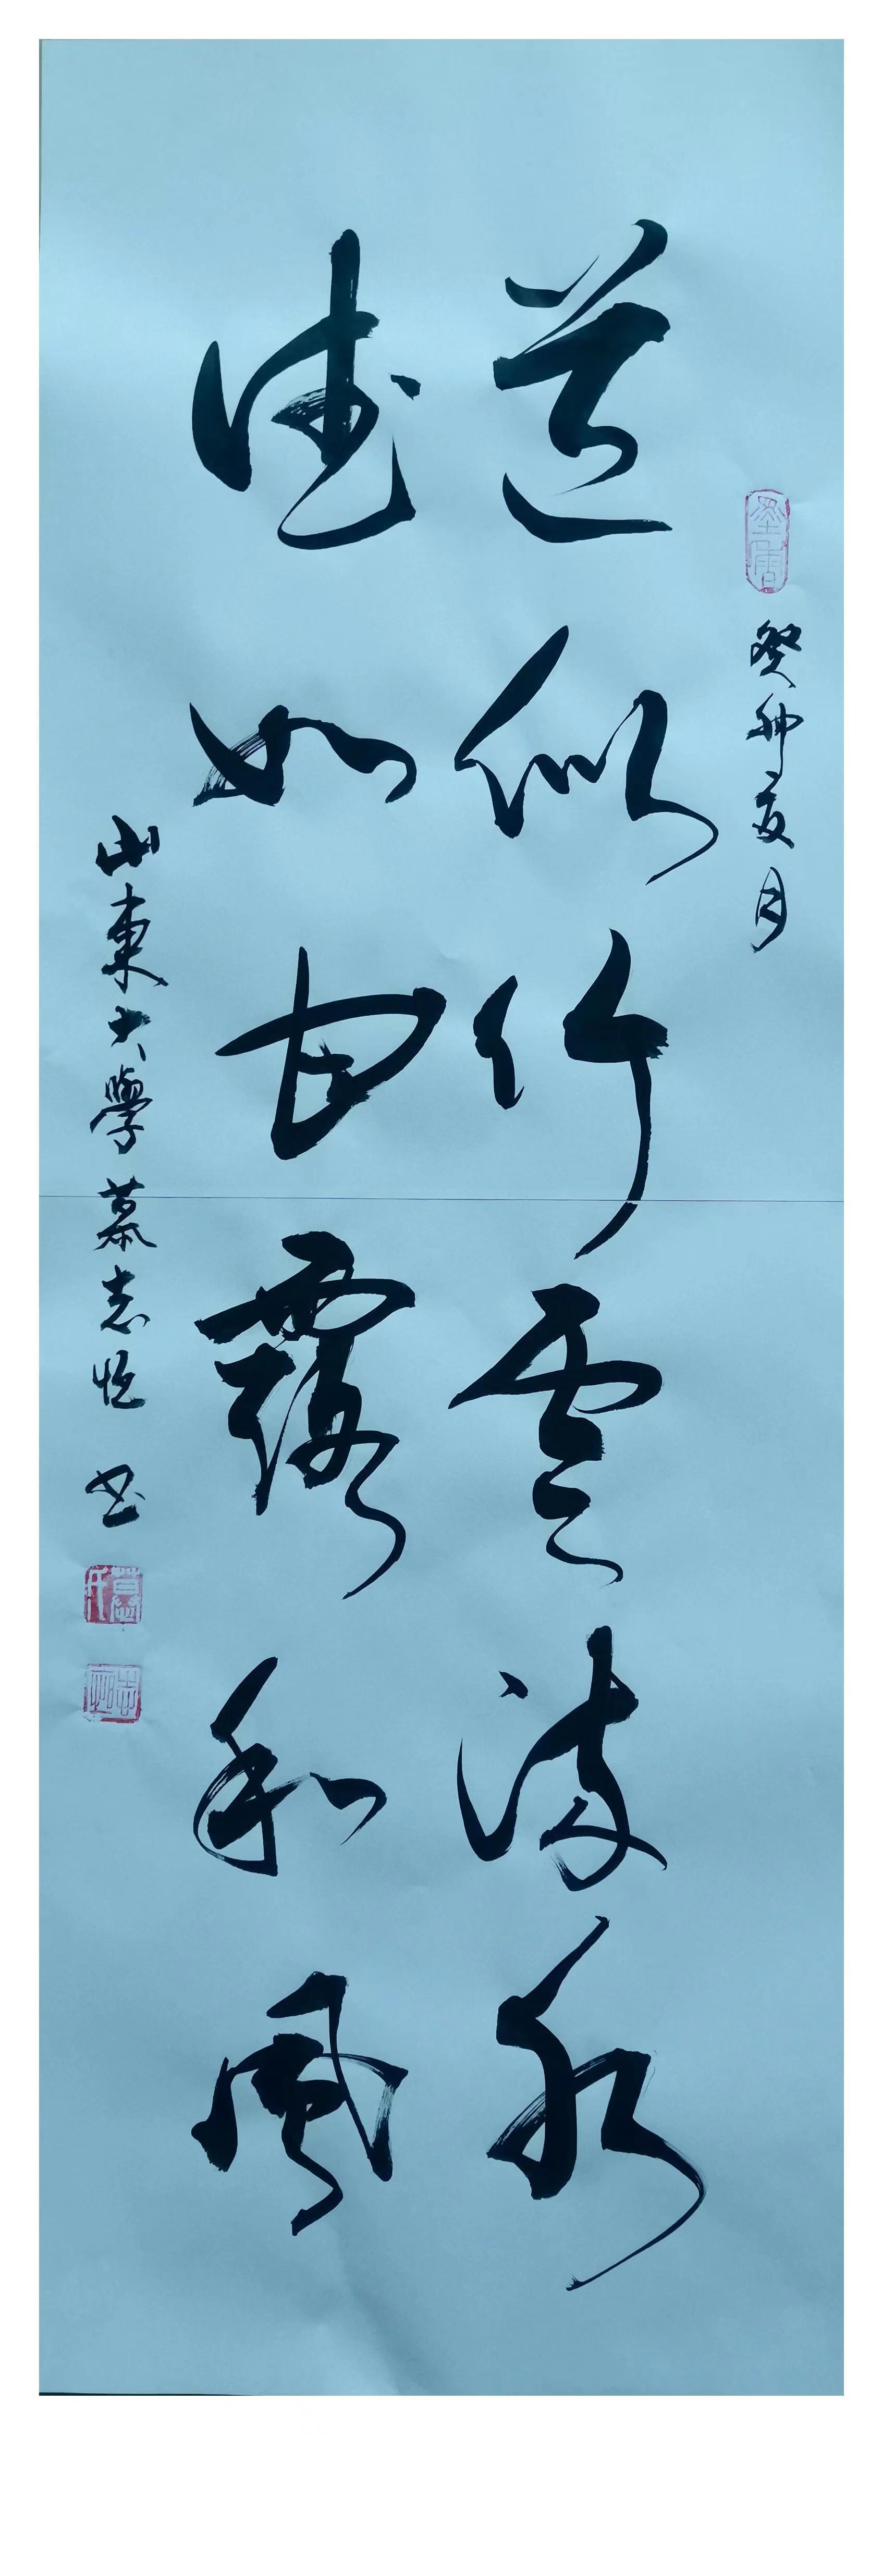 癸卯夏月
道似行雲流水
德如甘露和風
山東大學慕志恒书